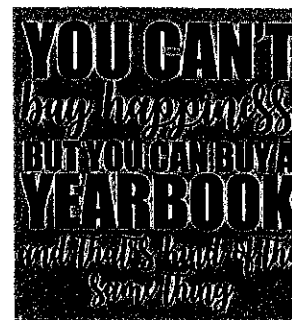 YOU CAN'T
buy happiness
BUT YOU CAN BUY A
YEARBOOK
and that's kind of the
Same thing